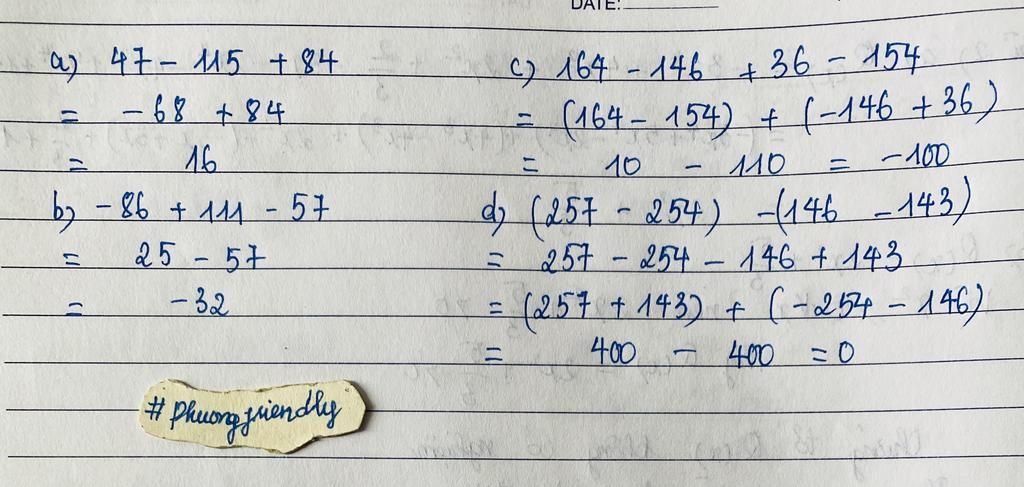 DATE:
a) 47 - 115 + 84
= -68 + 84
= 16
b) -86 + 111 - 57
= 25 - 57
= -32
c) 164 - 146 + 36 - 154
= (164 - 154) + (-146 + 36)
= 10 - 110 = -100
d) (257 - 254) - (146 - 143)
= 257 - 254 - 146 + 143
= (257 + 143) + (-254 - 146)
= 400 - 400 = 0
# Phuongfriendly